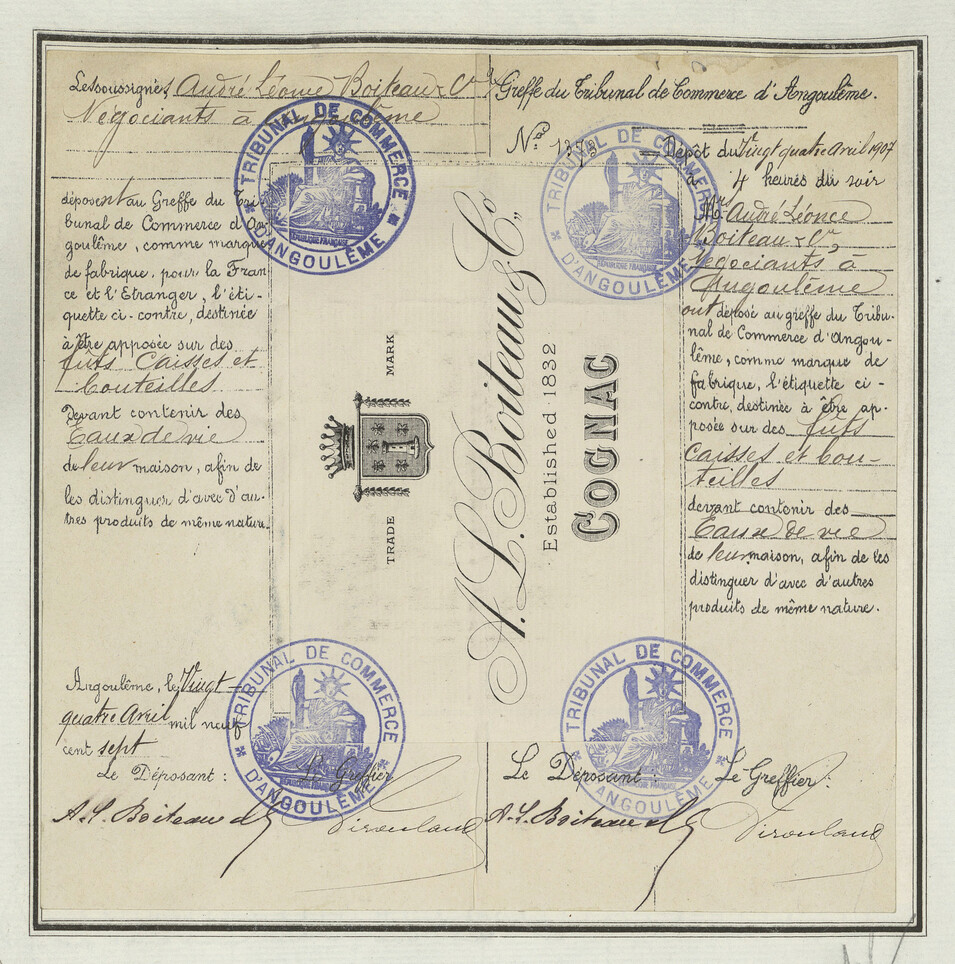 Les soussignés André Léonce Boiteau & Cie
Négociants à Angoulême
déposent au Greffe du Tri-
bunal de Commerce d'An-
goulême, comme marque
de fabrique, pour la Fran-
ce et l'Etranger, l'éti-
quette ci-contre, destinée
à être apposée sur des
fûts Caisses et
bouteilles
Devant contenir des
Eaux de vie
de leur maison, afin de
les distinguer d'avec d'au-
tres produits de même nature.
Angoulême, le Vingt
quatre Avril mil neuf
cent sept
Le Déposant : Le Greffier
A. L. Boiteau & Cie
TRADE MARK
A. L. Boiteau & Co
Established 1832
COGNAC
Greffe du Tribunal de Commerce d'Angoulême.
Dépôt du Vingt quatre Avril 1907
à 4 heures du soir
Mrs André Léonce
Boiteau & Cie,
Négociants à
Angoulême
ont déposé au greffe du Tribu-
nal de Commerce d'Angou-
lême, comme marque de
fabrique, l'étiquette ci-
contre, destinée à être ap-
posée sur des fûts
caisses et bou-
teilles
devant contenir des
Eaux de vie
de leur maison, afin de les
distinguer d'avec d'autres
produits de même nature.
Le Déposant : Le Greffier :
A. L. Boiteau & Cie
TRIBUNAL DE COMMERCE
D'ANGOULÊME
RÉPUBLIQUE FRANÇAISE
TRIBUNAL DE COMMERCE
D'ANGOULÊME
RÉPUBLIQUE FRANÇAISE
TRIBUNAL DE COMMERCE
D'ANGOULÊME
RÉPUBLIQUE FRANÇAISE
TRIBUNAL DE COMMERCE
D'ANGOULÊME
RÉPUBLIQUE FRANÇAISE